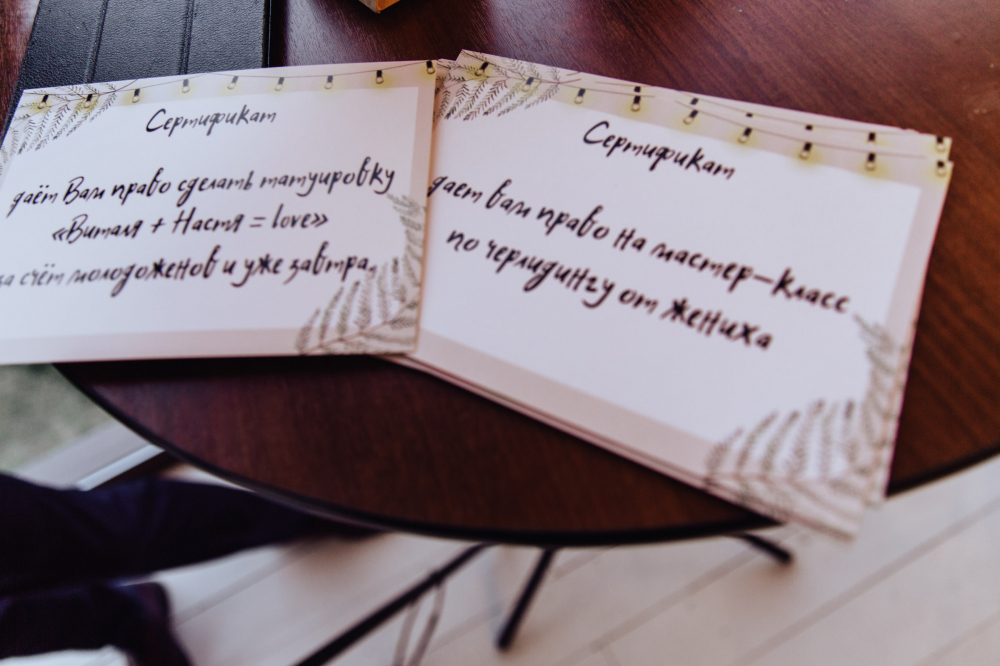 Сертификат
даёт Вам право сделать татуировку
«Виталя + Настя = love»
за счёт молодоженов и уже завтра.
Сертификат
дает вам право на мастер-класс
по черлидингу от жениха